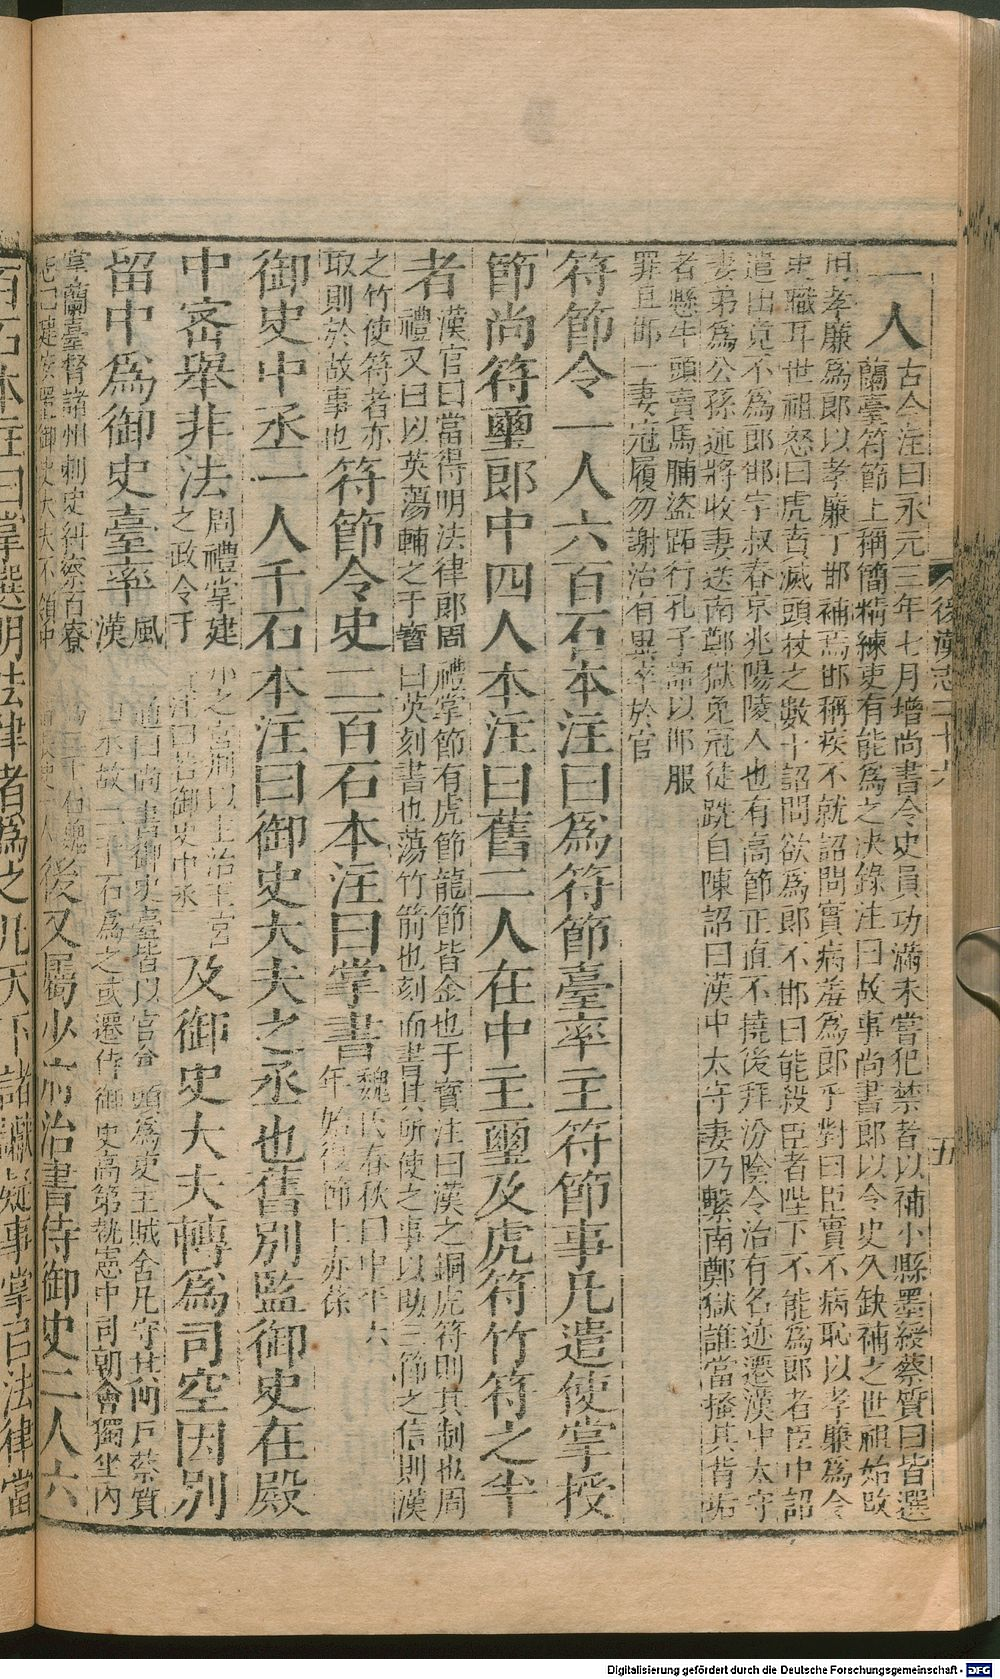 一人古今注曰永元三年七月增尚書令史員功滿未嘗犯禁者以補小縣墨綬蔡質曰皆選
蘭臺符節上稱簡精練吏有能為之決錄注曰故事尚書郎以令史久缺補之世祖始改
用孝廉為郎以孝廉丁邯補焉邯稱疾不就詔問實病羞為郎乎對曰臣實不病恥以孝廉為令
史職耳世祖怒曰虎賁滅頭杖之數十詔問欲為郎不邯曰能殺臣者陛下不能為郎者臣中詔
遣出竟不為郎邯字叔春京兆陽陵人也有高節正直不撓後拜汾陰令治有名迹遷漢中太守
妻弟為公孫述將收妻送南鄭獄免冠徒跣自陳詔曰漢中太守妻乃繫南鄭獄誰當搔其背垢
者懸牛頭賣馬脯盜跖行孔子語以邯服
罪且邯一妻冠履勿謝治有異卒於官
符節令一人六百石本注曰為符節臺率主符節事凡遣使掌授
節尚符璽郎中四人本注曰舊二人在中主璽及虎符竹符之半
者漢官曰當得明法律郎周禮掌節有虎節龍節皆金也干寶注曰漢之銅虎符則其制也周
禮又曰以英蕩輔之干寶曰英刻書也蕩竹箭也刻而書其所使之事以助三節之信則漢
之竹使符者亦
取則於故事也
符節令史二百石本注曰掌書魏氏春秋曰中平六
年始復節上赤葆
御史中丞一人千石本注曰御史大夫之丞也舊別監御史在殿
中密舉非法周禮掌建小之宮刑以上治王宮
之政令干寶注曰若御史中丞
及御史大夫轉為司空因別
留中為御史臺率風
通曰尚書御史臺皆以官倉頭為吏主賊舍凡守其門戶蔡質
漢
曰丞故二千石為之或遷侍御史高第執憲中司朝會獨坐內
掌蘭臺督諸州刺史糾察百寮
後又屬少府治書侍御史二人六
百石本注曰掌選明法律者為之凡天下諸讞疑事掌以法律當
後漢志二十六
五
Digitalisierung gefördert durch die Deutsche Forschungsgemeinschaft - DFG